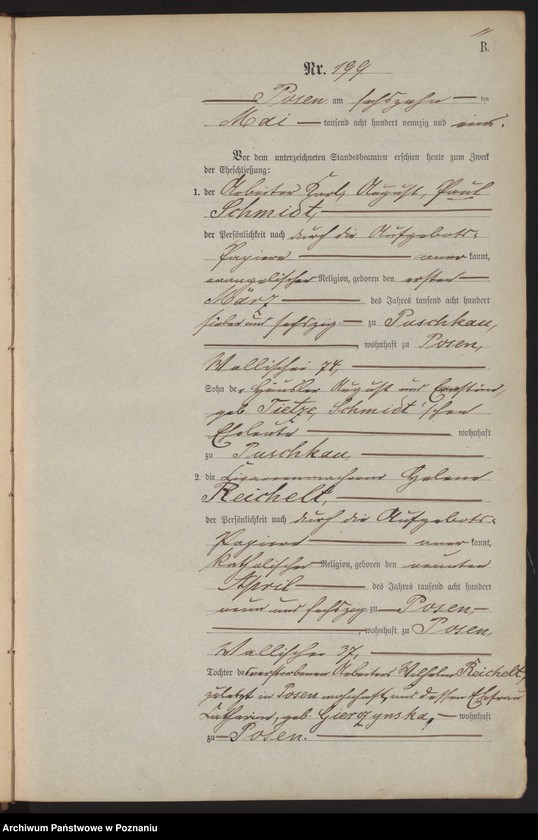 11
B.
Nr. 199
Posen am sechszehn ten
Mai tausend acht hundert neunzig und eins.
Vor dem unterzeichneten Standesbeamten erschien heute zum Zweck
der Eheschließung:
1. der Arbeiter Karl, August, Paul
Schmidt,
der Persönlichkeit nach durch die Aufgebots-
Papiere aner kannt,
evangelischer Religion, geboren den ersten
März des Jahres tausend acht hundert
sieben und sechszig zu Puschkau,
, wohnhaft zu Posen,
Wallischei 74,
Sohn der Häusler August und Ernstine,
geb. Tietze, Schmidt'schen
Eheleute wohnhaft
zu Puschkau,
2. die Cigarrenmacherin Helene
Reichelt,
der Persönlichkeit nach durch die Aufgebots-
Papiere aner kannt,
katholischer Religion, geboren den neunten
April des Jahres tausend acht hundert
neun und sechszig zu Posen
, wohnhaft zu Posen,
Wallischei 37,
Tochter des verstorbenen Arbeiters Wilhelm Reichelt,
zuletzt in Posen wohnhaft, und dessen Ehefrau
Catharina, geb. Gierczynska, wohnhaft
zu Posen.
Archiwum Państwowe w Poznaniu